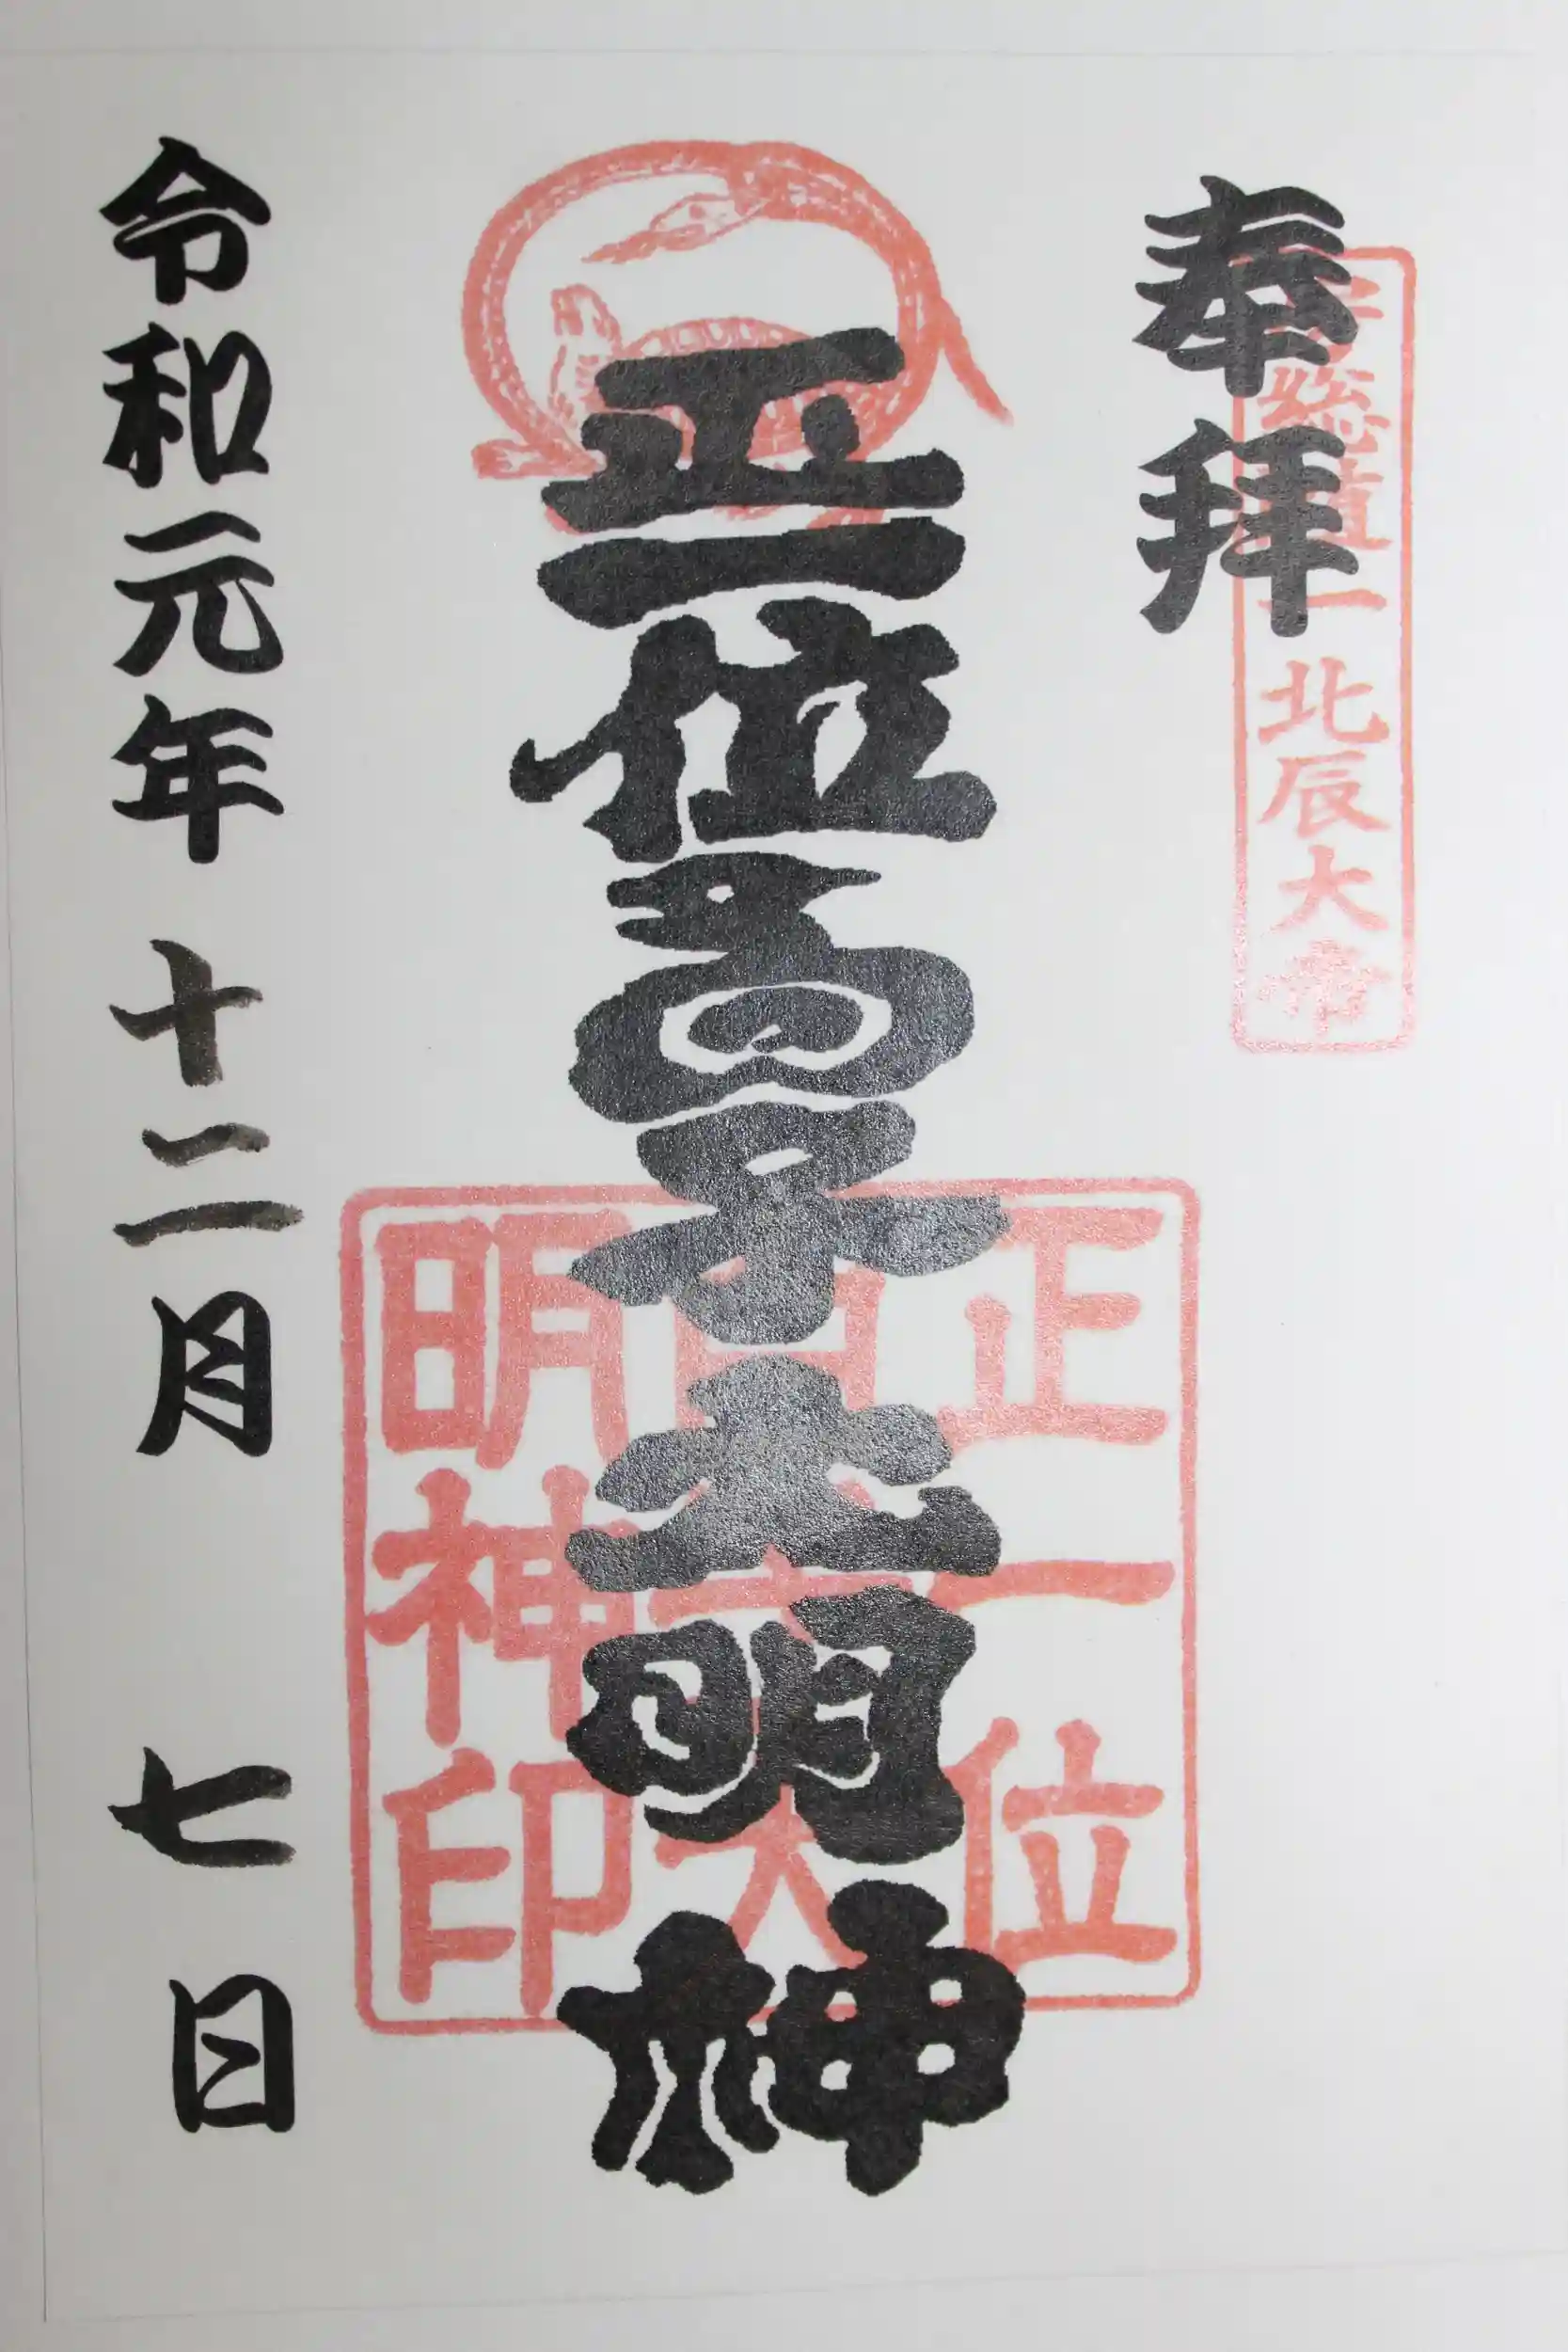 奉拝
北辰大帝
正一位高
大明神
正一位
大
明神印
令和元年十二月七日